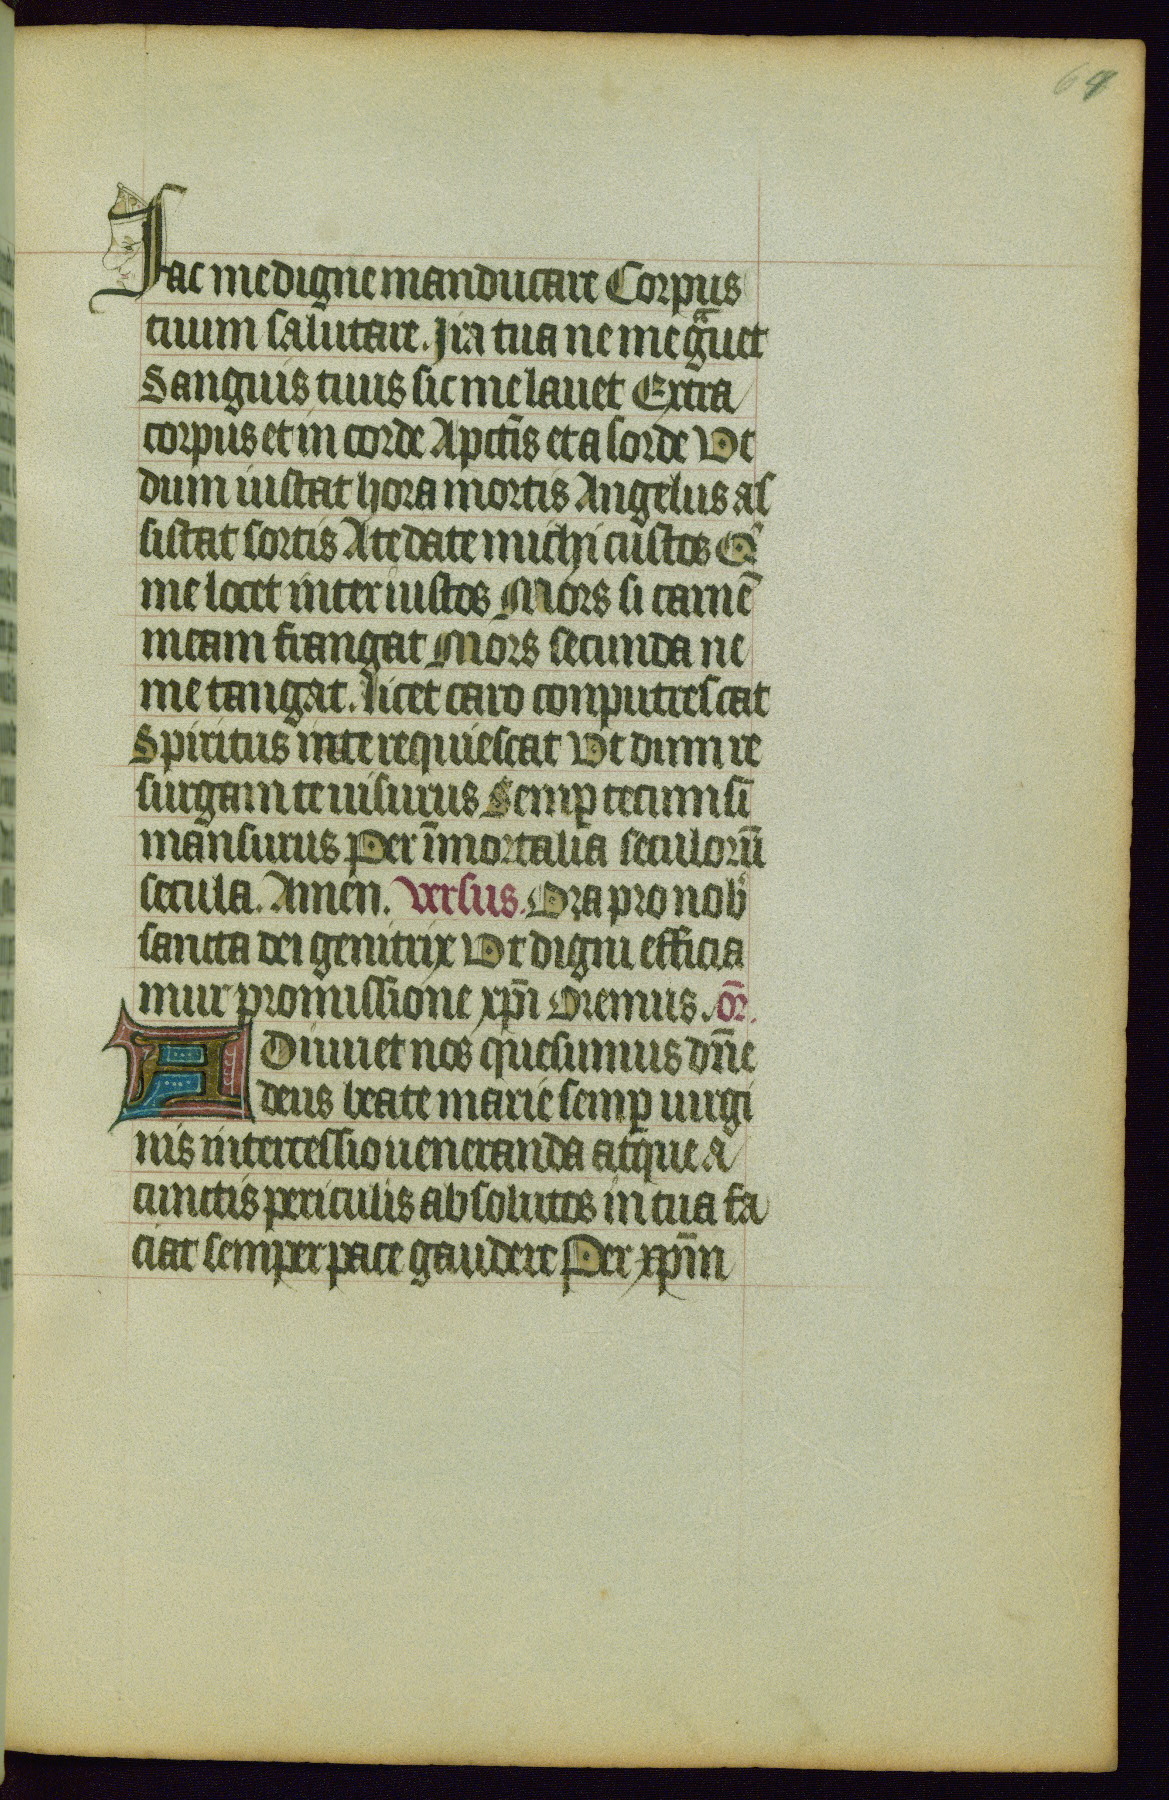 69
Fac me digne manducare Corpus
tuum salutare. Ira tua ne me gͣuet
Sanguis tuus sic me lauet Extra
corpus et in corde A pcc̄is et a sorde Vt
dum instat hora mortis Angelus as
sistat fortis A te date michi custos Qͥ
me locet inter iustos Mors si carnē
meam frangat Mors secunda ne
me tangat. Licet caro conputrescat
Spiritus in te requiescat Vt dum re
surgam te uisurus Semꝑ tecum sī
mansurus Per īmortalia seculorū
secula. Amen. Versus. Ora pro nobˢ
sancta dei genitrix Vt digni efficia
mur promissione xp̄i Oremus. or̄.
ADiuuet nos quesumus dn̄e
deus beate marie semꝑ uirgi
nis intercessio ueneranda atque a
cunctis periculis absolutos in tua fa
ciat semper pace gaudere Per xp̄m